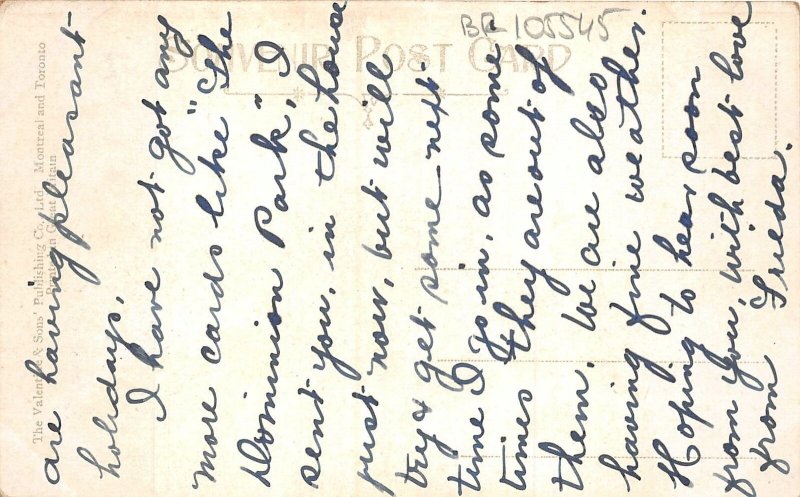 BR 105545
SOUVENIR POST CARD
The Valentine & Sons' Publishing Co., Ltd. Montreal and Toronto
Printed in Great Britain
are having pleasant
holidays.
I have not got any
more cards like "The
Dominion Park," I
sent you, in the house
just now, but will
try & get some next
time I go in, as some
times they are out of
them. We are also
having fine weather.
Hoping to hear soon
from you, with best love
from Frieda.